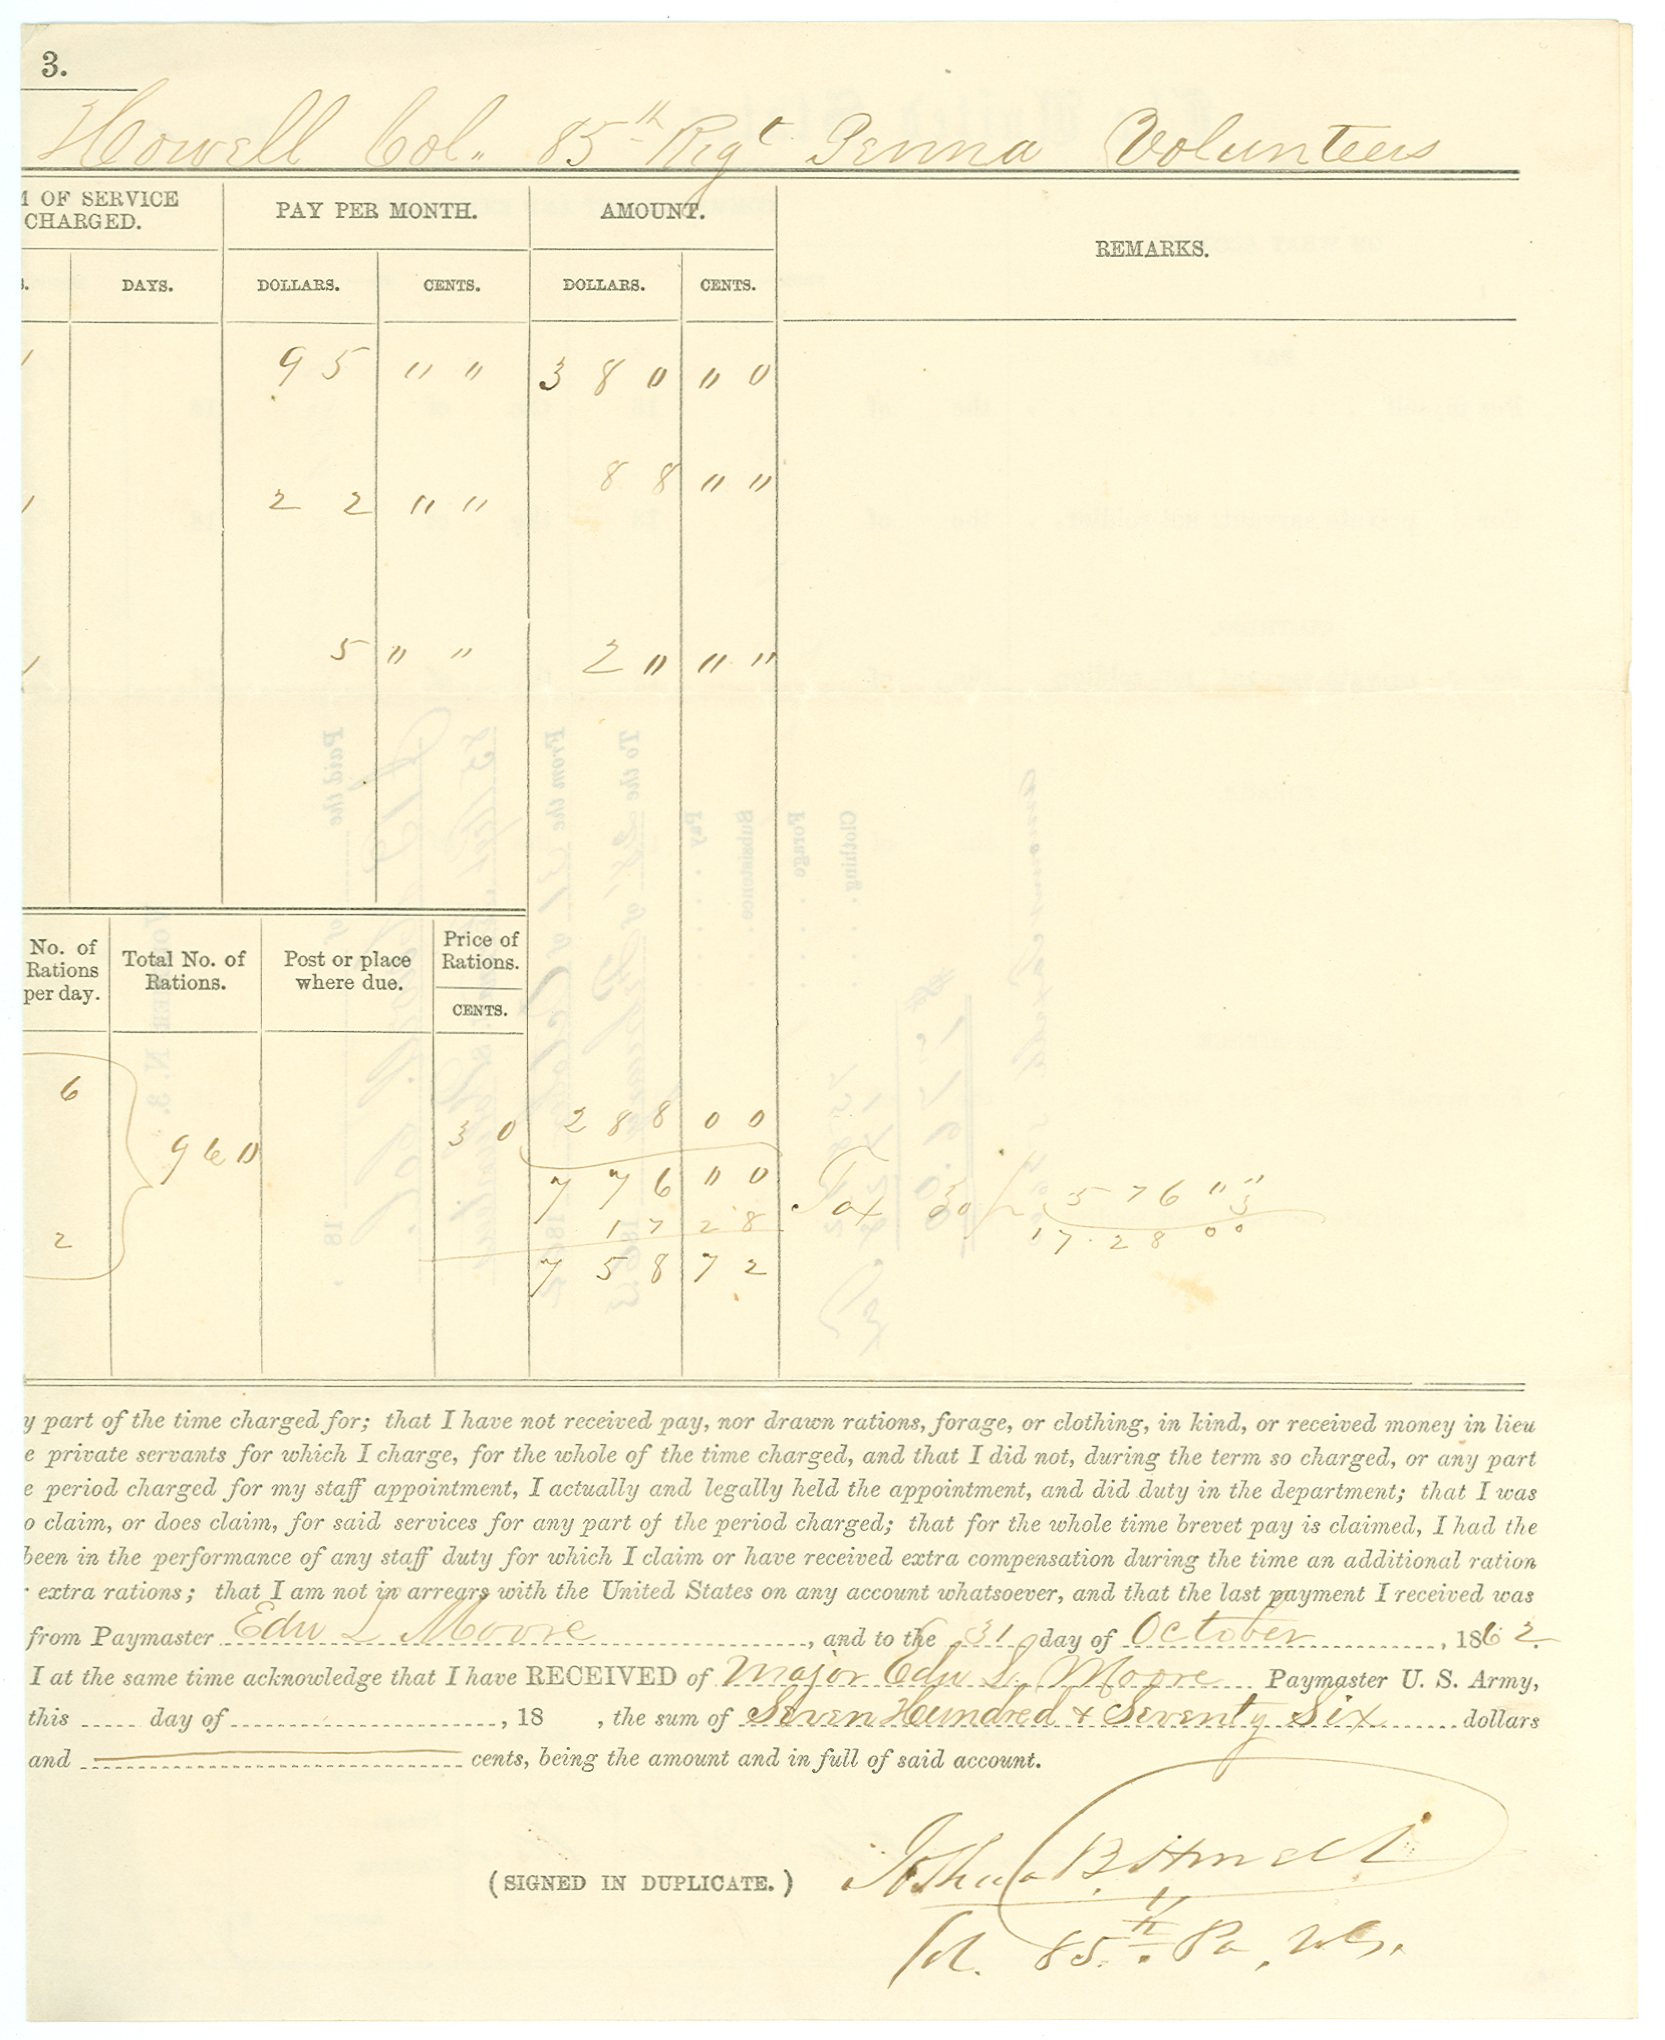 3.
Howell Col. 85th Regt Penna Volunteers
M OF SERVICE CHARGED. PAY PER MONTH. AMOUNT. REMARKS.
S. DAYS. DOLLARS. CENTS. DOLLARS. CENTS.
95 " " 380 "0
22 " " 88 " "
5 " " 2" " "
No. of Rations per day. Total No. of Rations. Post or place where due. Price of Rations.
CENTS.
6
960 30 288 00
776 "0 Tax 3 0/0 576 " "
3
2 17 28 17.28 00
758 72
y part of the time charged for; that I have not received pay, nor drawn rations, forage, or clothing, in kind, or received money in lieu
e private servants for which I charge, for the whole of the time charged, and that I did not, during the term so charged, or any part
e period charged for my staff appointment, I actually and legally held the appointment, and did duty in the department; that I was
o claim, or does claim, for said services for any part of the period charged; that for the whole time brevet pay is claimed, I had the
been in the performance of any staff duty for which I claim or have received extra compensation during the time an additional ration
r extra rations; that I am not in arrears with the United States on any account whatsoever, and that the last payment I received was
from Paymaster Edw L Moore, and to the 31 day of October, 1862
I at the same time acknowledge that I have RECEIVED of Major Edw L. Moore Paymaster U. S. Army,
this day of , 18 , the sum of Seven Hundred & Seventy Six dollars
and cents, being the amount and in full of said account.
(SIGNED IN DUPLICATE.) Joshua B. Howell
Col. 85th Pa. Vols.